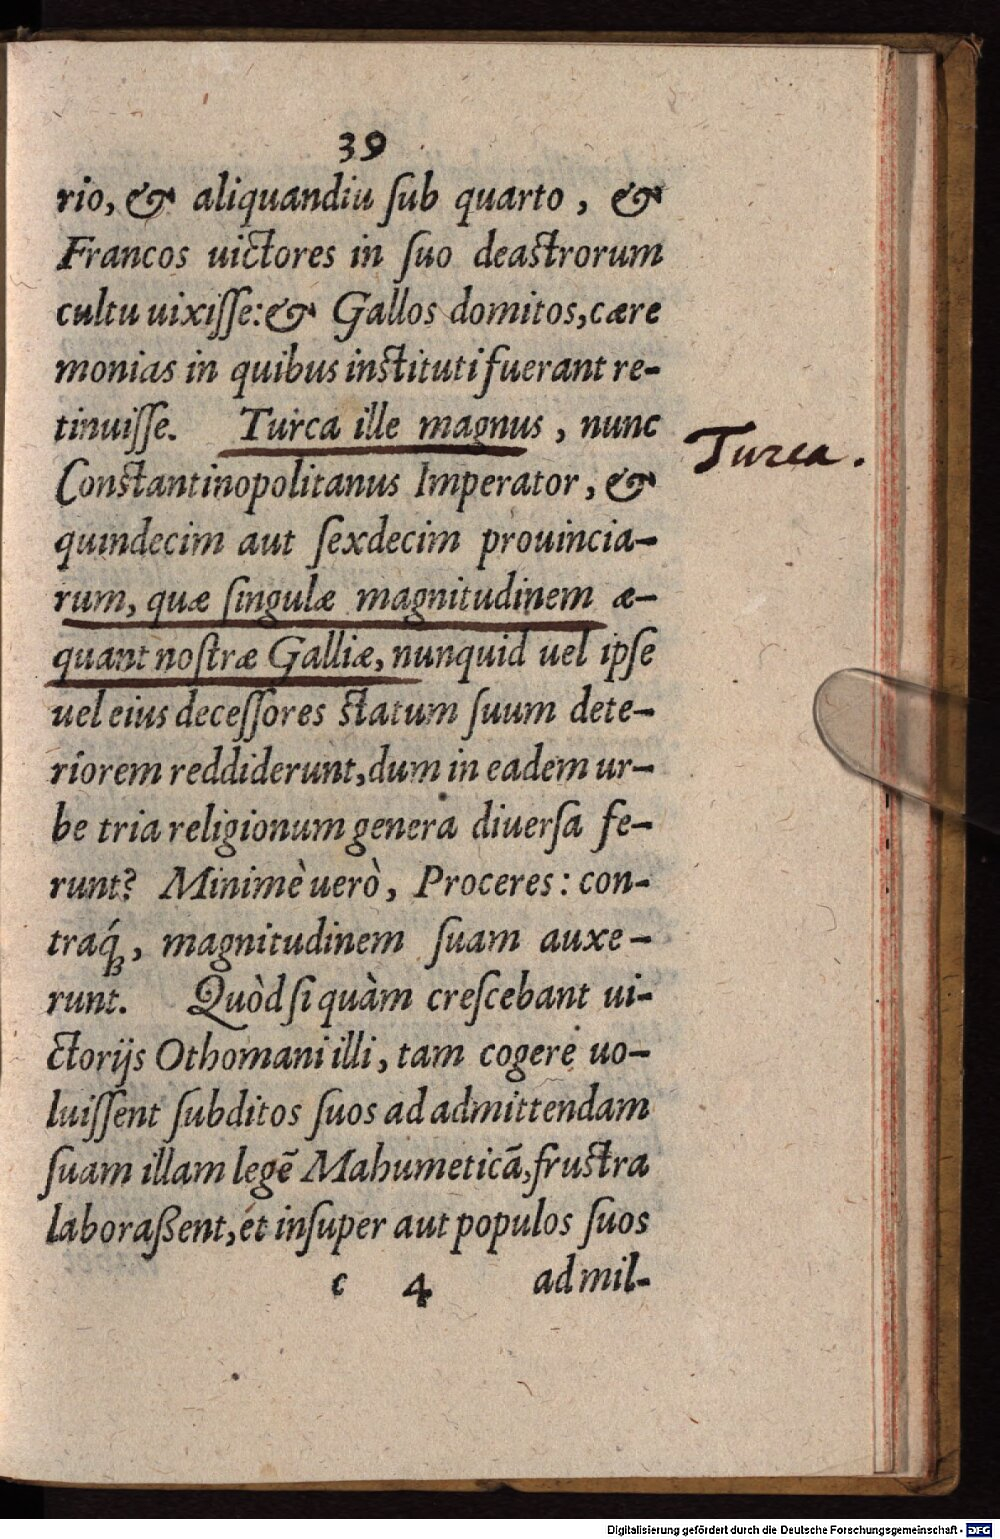 39
rio, & aliquandiu ſub quarto, &
Francos uictores in ſuo deaſtrorum
cultu uixiſſe: & Gallos domitos, cære
monias in quibus inſtituti fuerant re-
tinuiſſe. Turca ille magnus, nunc
Turca.
Conſtantinopolitanus Imperator, &
quindecim aut ſexdecim prouincia-
rum, quæ ſingulæ magnitudinem æ-
quant noſtræ Galliæ, nunquid uel ipſe
uel eius deceſſores ſtatum ſuum dete-
riorem reddiderunt, dum in eadem ur-
be tria religionum genera diuerſa fe-
runt? Minimè uerò, Proceres: con-
traq́;, magnitudinem ſuam auxe-
runt. Quòd ſi quàm creſcebant ui-
ctorijs Othomani illi, tam cogere uo-
luiſſent ſubditos ſuos ad admittendam
ſuam illam legẽ Mahumeticã, fruſtra
laboraßent, et inſuper aut populos ſuos
c 4 ad mil-
Digitalisierung gefördert durch die Deutsche Forschungsgemeinschaft - DFG